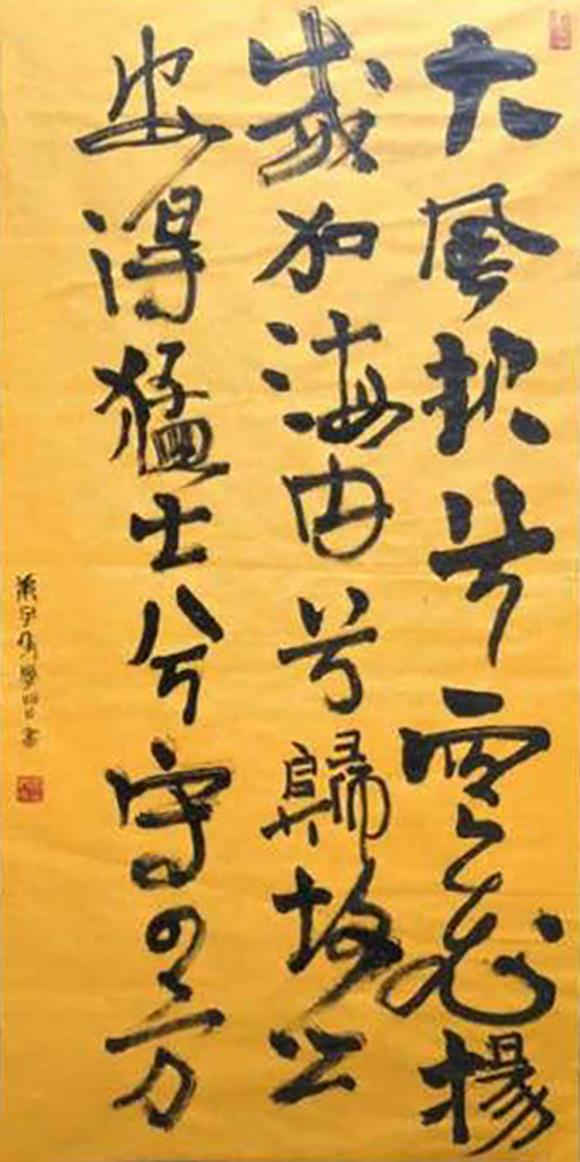 大風起兮雲飛揚
威加海内兮歸故鄉
安得猛士兮守四方
書